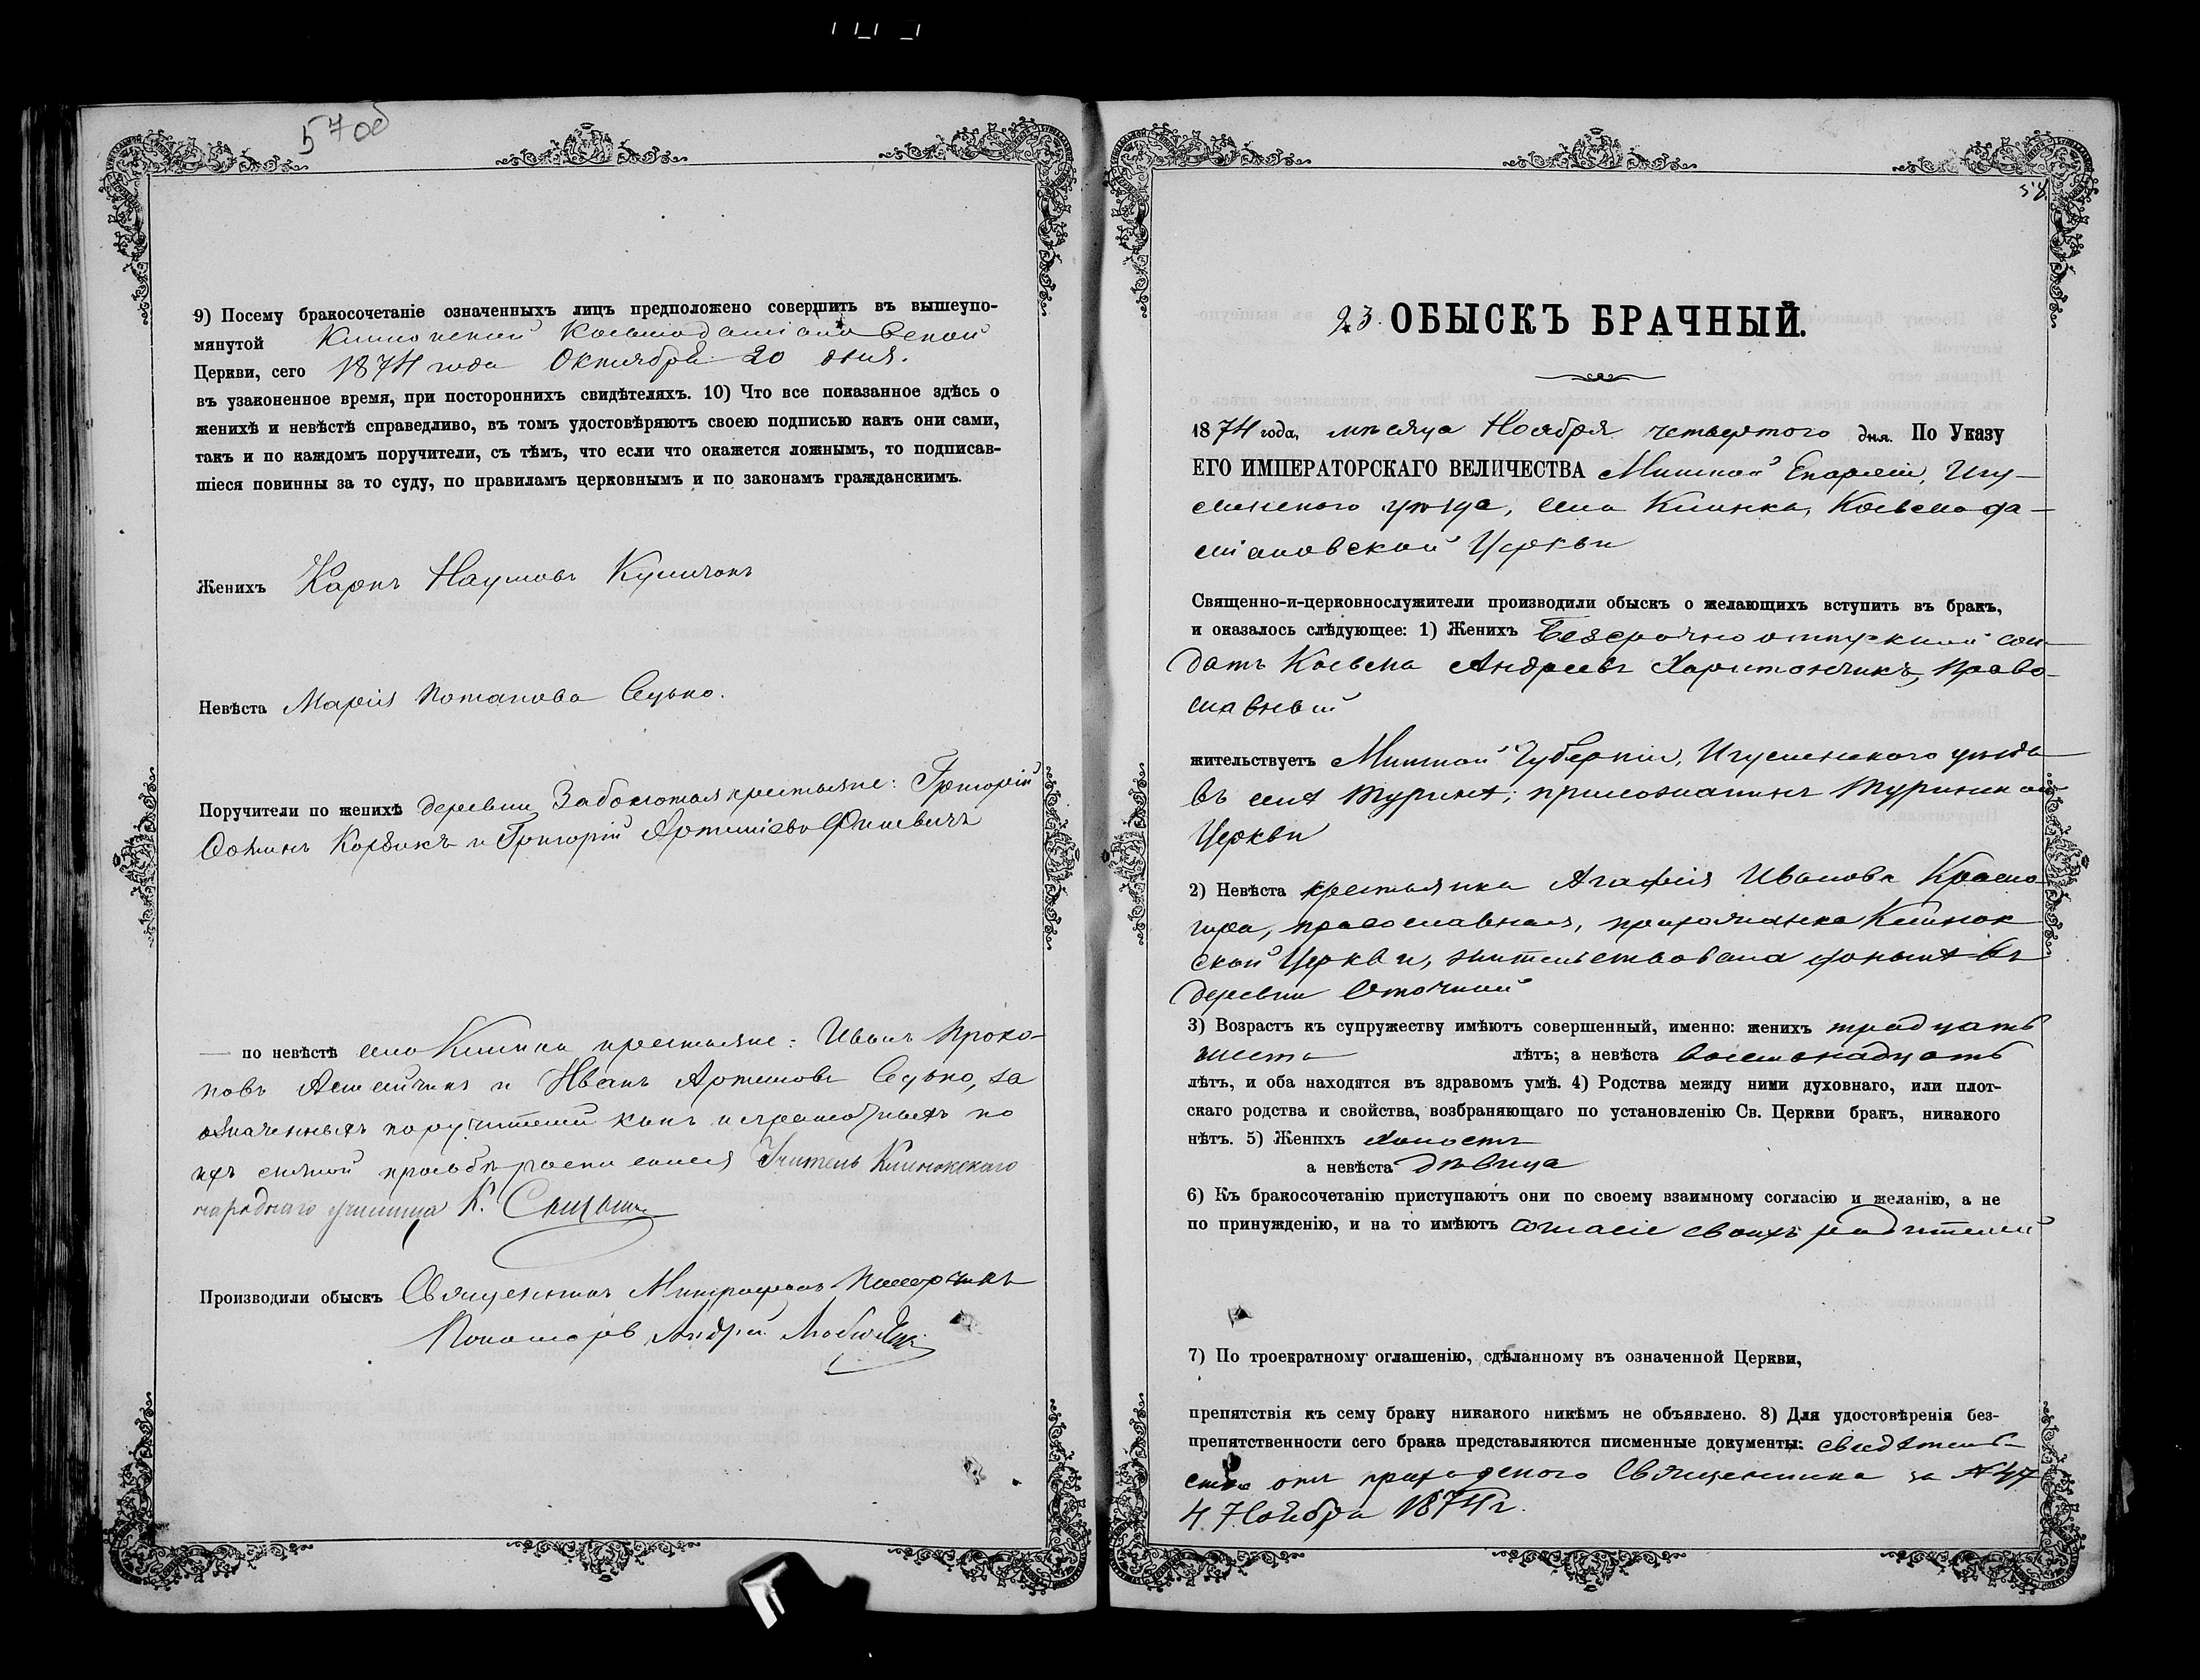 57об
9) Посему бракосочетаніе означенныхъ лицъ предположено совершить въ вышеупо-
мянутой Клинокской Косьмодаміановской
Церкви, сего 1874 года Октября 20 дня.
въ узаконенное время, при постороннихъ свидѣтеляхъ. 10) Что все показанное здѣсь о
женихѣ и невѣстѣ справедливо, въ томъ удостовѣряютъ своею подписью какъ они сами,
такъ и по каждомъ поручители, съ тѣмъ, что если что окажется ложнымъ, то подписав-
шіеся повинны за то суду, по правиламъ церковнымъ и по законамъ гражданскимъ.
Женихъ Карпъ Наумовъ
Невѣста Марія Потапова Сецко.
Поручители по женихѣ деревни Заболотья крестьяне: Григорій
и Григорій
по невѣстѣ села Клинка крестьяне: Иванъ Проко-
повъ и Иванъ Артемовъ Сецко, за
означенныхъ поручителей какъ неграмотныхъ по
ихъ личной просьбѣ росписался Учитель Клинокскаго
народнаго училища К.
Производили обыскъ Священникъ Митрофанъ
Пономарь Андрей
58
23. ОБЫСКЪ БРАЧНЫЙ.
1874 года, мѣсяца Ноября четвертого дня. По Указу
ЕГО ИМПЕРАТОРСКАГО ВЕЛИЧЕСТВА Минской Епархіи, Игу-
менского уѣзда, села Клинка, Косьмода-
міановской Церкви
Священно-и-церковнослужители производили обыскъ о желающихъ вступить въ бракъ,
и оказалось слѣдующее: 1) Женихъ Безсрочноотпускной сол-
датъ Косьма Андреевъ Харитончикъ, право-
славный
жительствуетъ Минской Губерніи, Игуменского уѣзда
въ селѣ Туринѣ; прихожанинъ Туринской
Церкви
2) Невѣста крестьянка Агафія Иванова Красно-
гира, православная, прихожанка Клинок
ской Церкви, жительствовала донынѣ въ
деревни Оточкой
3) Возрастъ къ супружеству имѣютъ совершенный, именно: женихъ тридцать
шесть лѣтъ; а невѣста восемьнадцать
лѣтъ, и оба находятся въ здравомъ умѣ. 4) Родства между ними духовнаго, или плот-
скаго родства и свойства, возбраняющаго по установленію Св. Церкви бракъ, никакого
нѣтъ. 5) Женихъ холостъ
а невѣста дѣвица
6) Къ бракосочетанію приступаютъ они по своему взаимному согласію и желанію, а не
по принужденію, и на то имѣютъ согласіе своихъ родителей
7) По троекратному оглашенію, сдѣланному въ означенной Церкви,
препятствія къ сему браку никакого никѣмъ не объявлено. 8) Для удостовѣренія без-
препятственности сего брака представляются писменные документы: свидѣтель-
ство отъ приходского Священника за № 47
4 Ноября 1874 г.